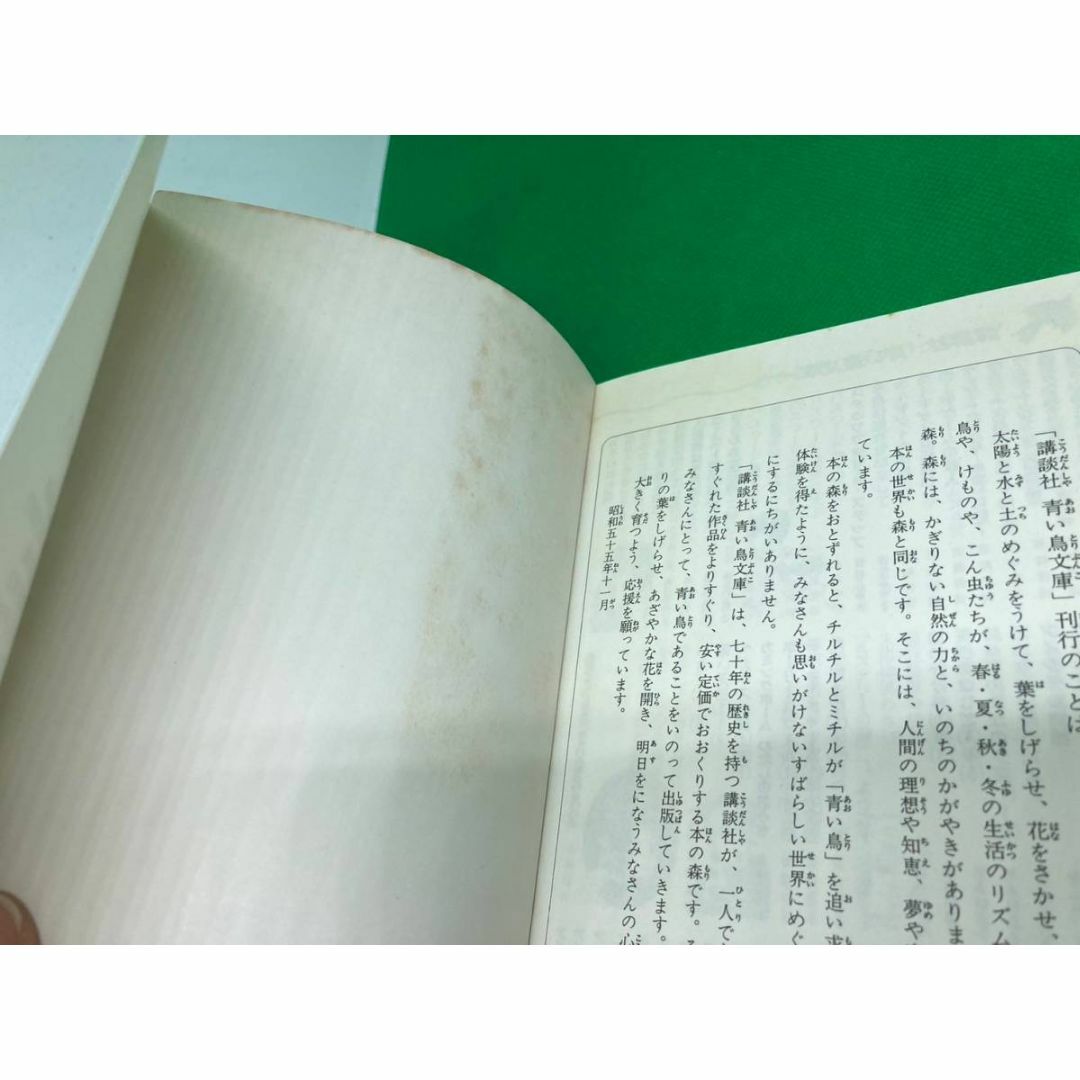 「講談社 青い鳥文庫」刊行のことば
太陽と水と土のめぐみをうけて、葉をしげらせ、花をさかせ、
鳥や、けものや、こん虫たちが、春・夏・秋・冬の生活のリズム
森。森には、かぎりない自然の力と、いのちのかがやきがありま
本の世界も森と同じです。そこには、人間の理想や知恵、夢や
ています。
本の森をおとずれると、チルチルとミチルが「青い鳥」を追い求
体験を得たように、みなさんも思いがけないすばらしい世界にめぐ
にするにちがいありません。
「講談社 青い鳥文庫」は、七十年の歴史を持つ講談社が、一人で
すぐれた作品をよりすぐり、安い定価でおおくりする本の森です。
みなさんにとって、青い鳥であることをいのって出版していきます。
りの葉をしげらせ、あざやかな花を開き、明日をになうみなさんの心
大きく育つよう、応援を願っています。
昭和五十五年十一月